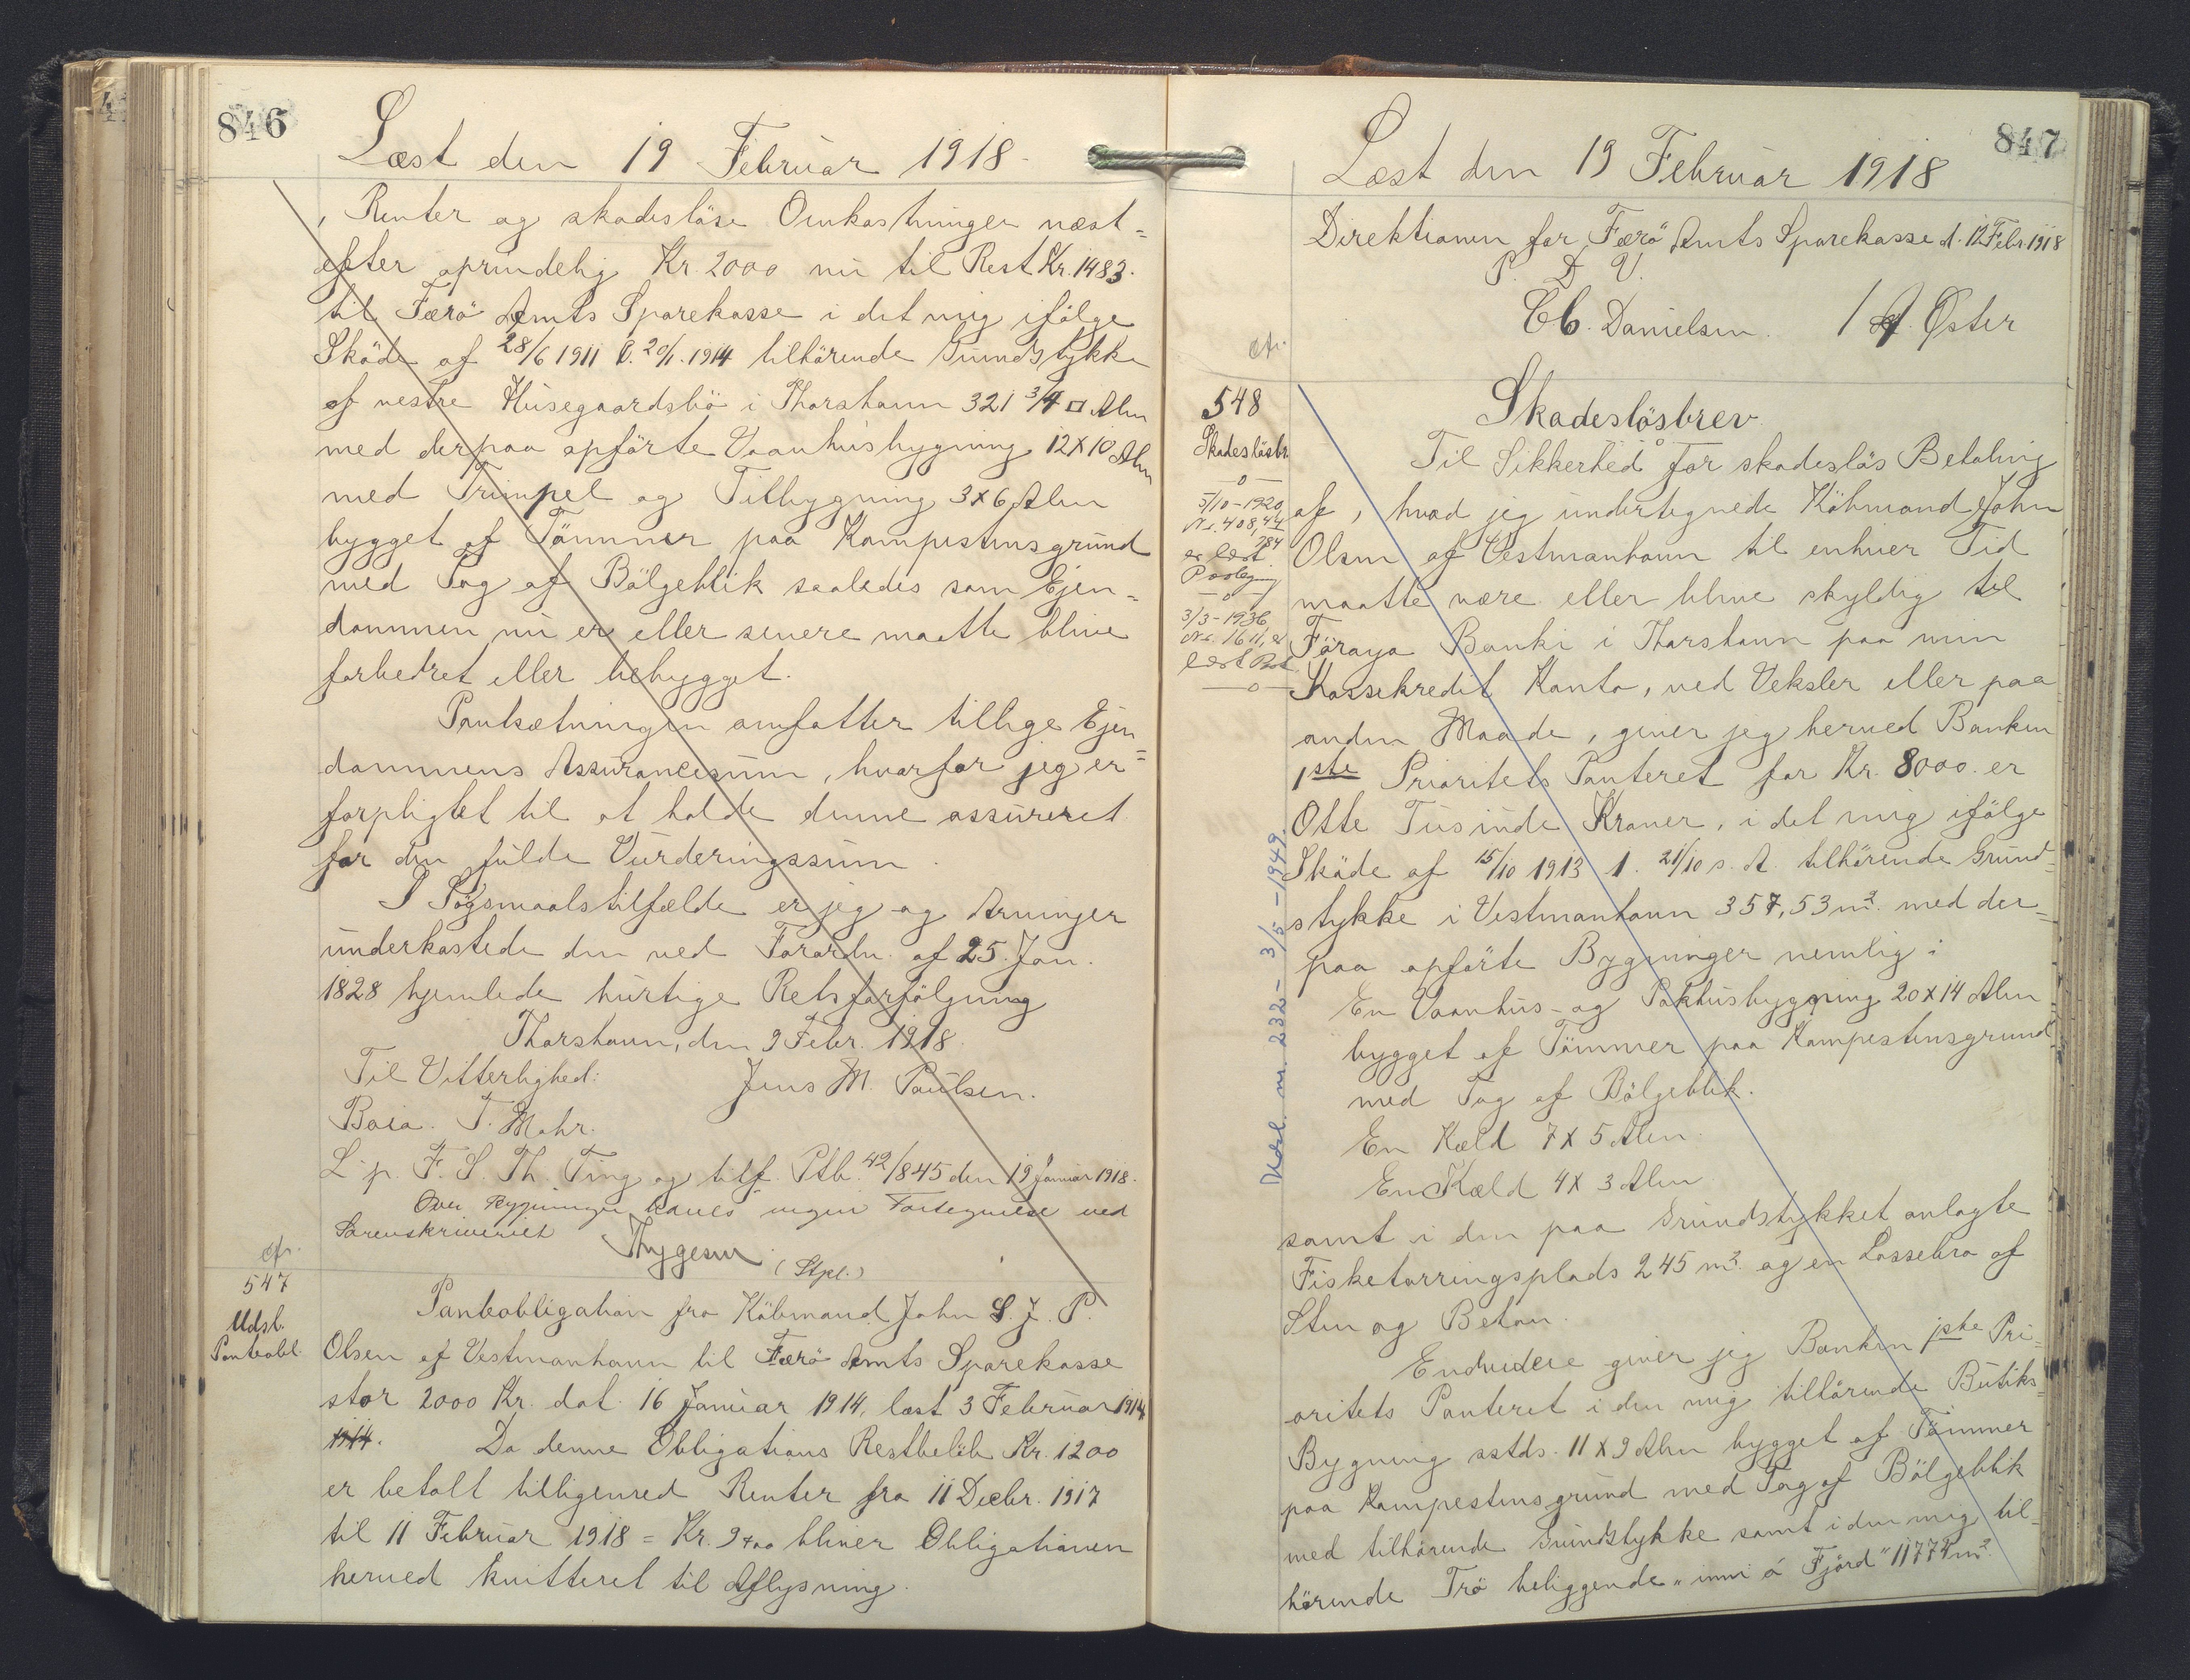 846
Læst den 19 Februar 1918.
, Renter og skadesløse Omkostninger næst=
efter oprindelig Kr. 2000 nu til Rest Kr. 1483.
til Færø Amts Sparekasse i det mig ifølge
Skøde af 28/6 1911 l. 20/1. 1914 tilhørende Grundstykke
af vestre Husegaardsbø i Thorshavn 321 3/4 □ Alen
med derpaa opførte Vaanhusbygning 12 X 10 Alen
med Trimpel og Tilbygning 3 x 6 Alen
bygget af Tømmer paa Kampestensgrund
med Tag af Bølgeblik saaledes som Ejen=
dommen nu er eller senere maatte blive
forbedret eller bebygget.
Pantsætningen omfatter tillige Ejen=
dommens Assurancesum, hvorfor jeg er
forpligtet til at holde denne assureret
for den fulde Vurderingssum.
I Søgsmaalstilfælde er jeg og Arvinger
underkastede den ved Forordn. af 25. Jan.
1828 hjemlede hurtige Retsforfølgning
Thorshavn, den 9 Febr. 1918.
Til Vitterlighed: Jens M. Poulsen.
T. Mohr.
L. p. F. S. Th. Ting og tilf. Ptb. 42/845 den 19 Januar 1918.
Over Bygningen haves ingen Fortegnelse ved
Sorenskriveriet
Thygesen (Stpl.)
547
Udsl.
Panteobl.
Panteobligation fra Købmand John S. J. P.
Olsen af Vestmanhavn til Færø Amts Sparekasse
stor 2000 Kr. dat. 16 Januar 1914, læst 3 Februar 1914
1914. Da denne Obligations Restbeløb Kr. 1200
er betalt tilligemed Renter fra 11 Decbr. 1917
til 11 Februar 1918 = Kr. bliver Obligationen
herved kvitteret til Aflysning.
847
Læst den 19 Februar 1918
Direktionen for Færø Amts Sparekasse d. 12 Febr. 1918
P. D. V.
Chr. Danielsen. / A. Øster
548
Skadesløsbr.
—o—
5/10-1920
Nr. 408, 44
784
er læst
Paategning
—o—
3/3-1936
Nr. 1611, er
læst Paat.
—o—
Udsl. nr. 232- 3/5-1949.
Skadesløsbrev
Til Sikkerhed for skadesløs Betaling
af, hvad jeg undertegnede Købmand John
Olsen af Vestmanhavn til enhver Tid
maatte være eller blive skyldig til
Føroya Banki i Thorshavn paa min
Kassekredit Konto, ved Veksler eller paa
anden Maade, giver jeg herved Banken
1ste Prioritets Panteret for Kr. 8000. er
Otte Tusinde Kroner, i det mig ifølge
Skøde af 15/10 1913 l. 21/10 s. A. tilhørende Grund=
stykke i Vestmanhavn 357,53 m². med der=
paa opførte Bygninger nemlig:
En Vaanhus- og Pakhusbygning 20 x 14 Alen
bygget af Tømmer paa Kampestensgrund
med Tag af Bølgeblik.
En Kæld 7 X 5 Alen.
En Kæld 4 X 3 Alen
samt i den paa Grundstykket anlagte
Fisketørringsplads 245 m². og en Lossebro af
Sten og Beton.
Endvidere giver jeg Banken 1ste Pri=
oritets Panteret i den mig tilhørende Butiks=
Bygning sstds. 11 X 9 Alen bygget af Tømmer
paa Kampestensgrund med Tag af Bølgeblik
med tilhørende Grundstykke samt i den mig til=
hørende Trø beliggende „inni á Fjørð" 11774 m².